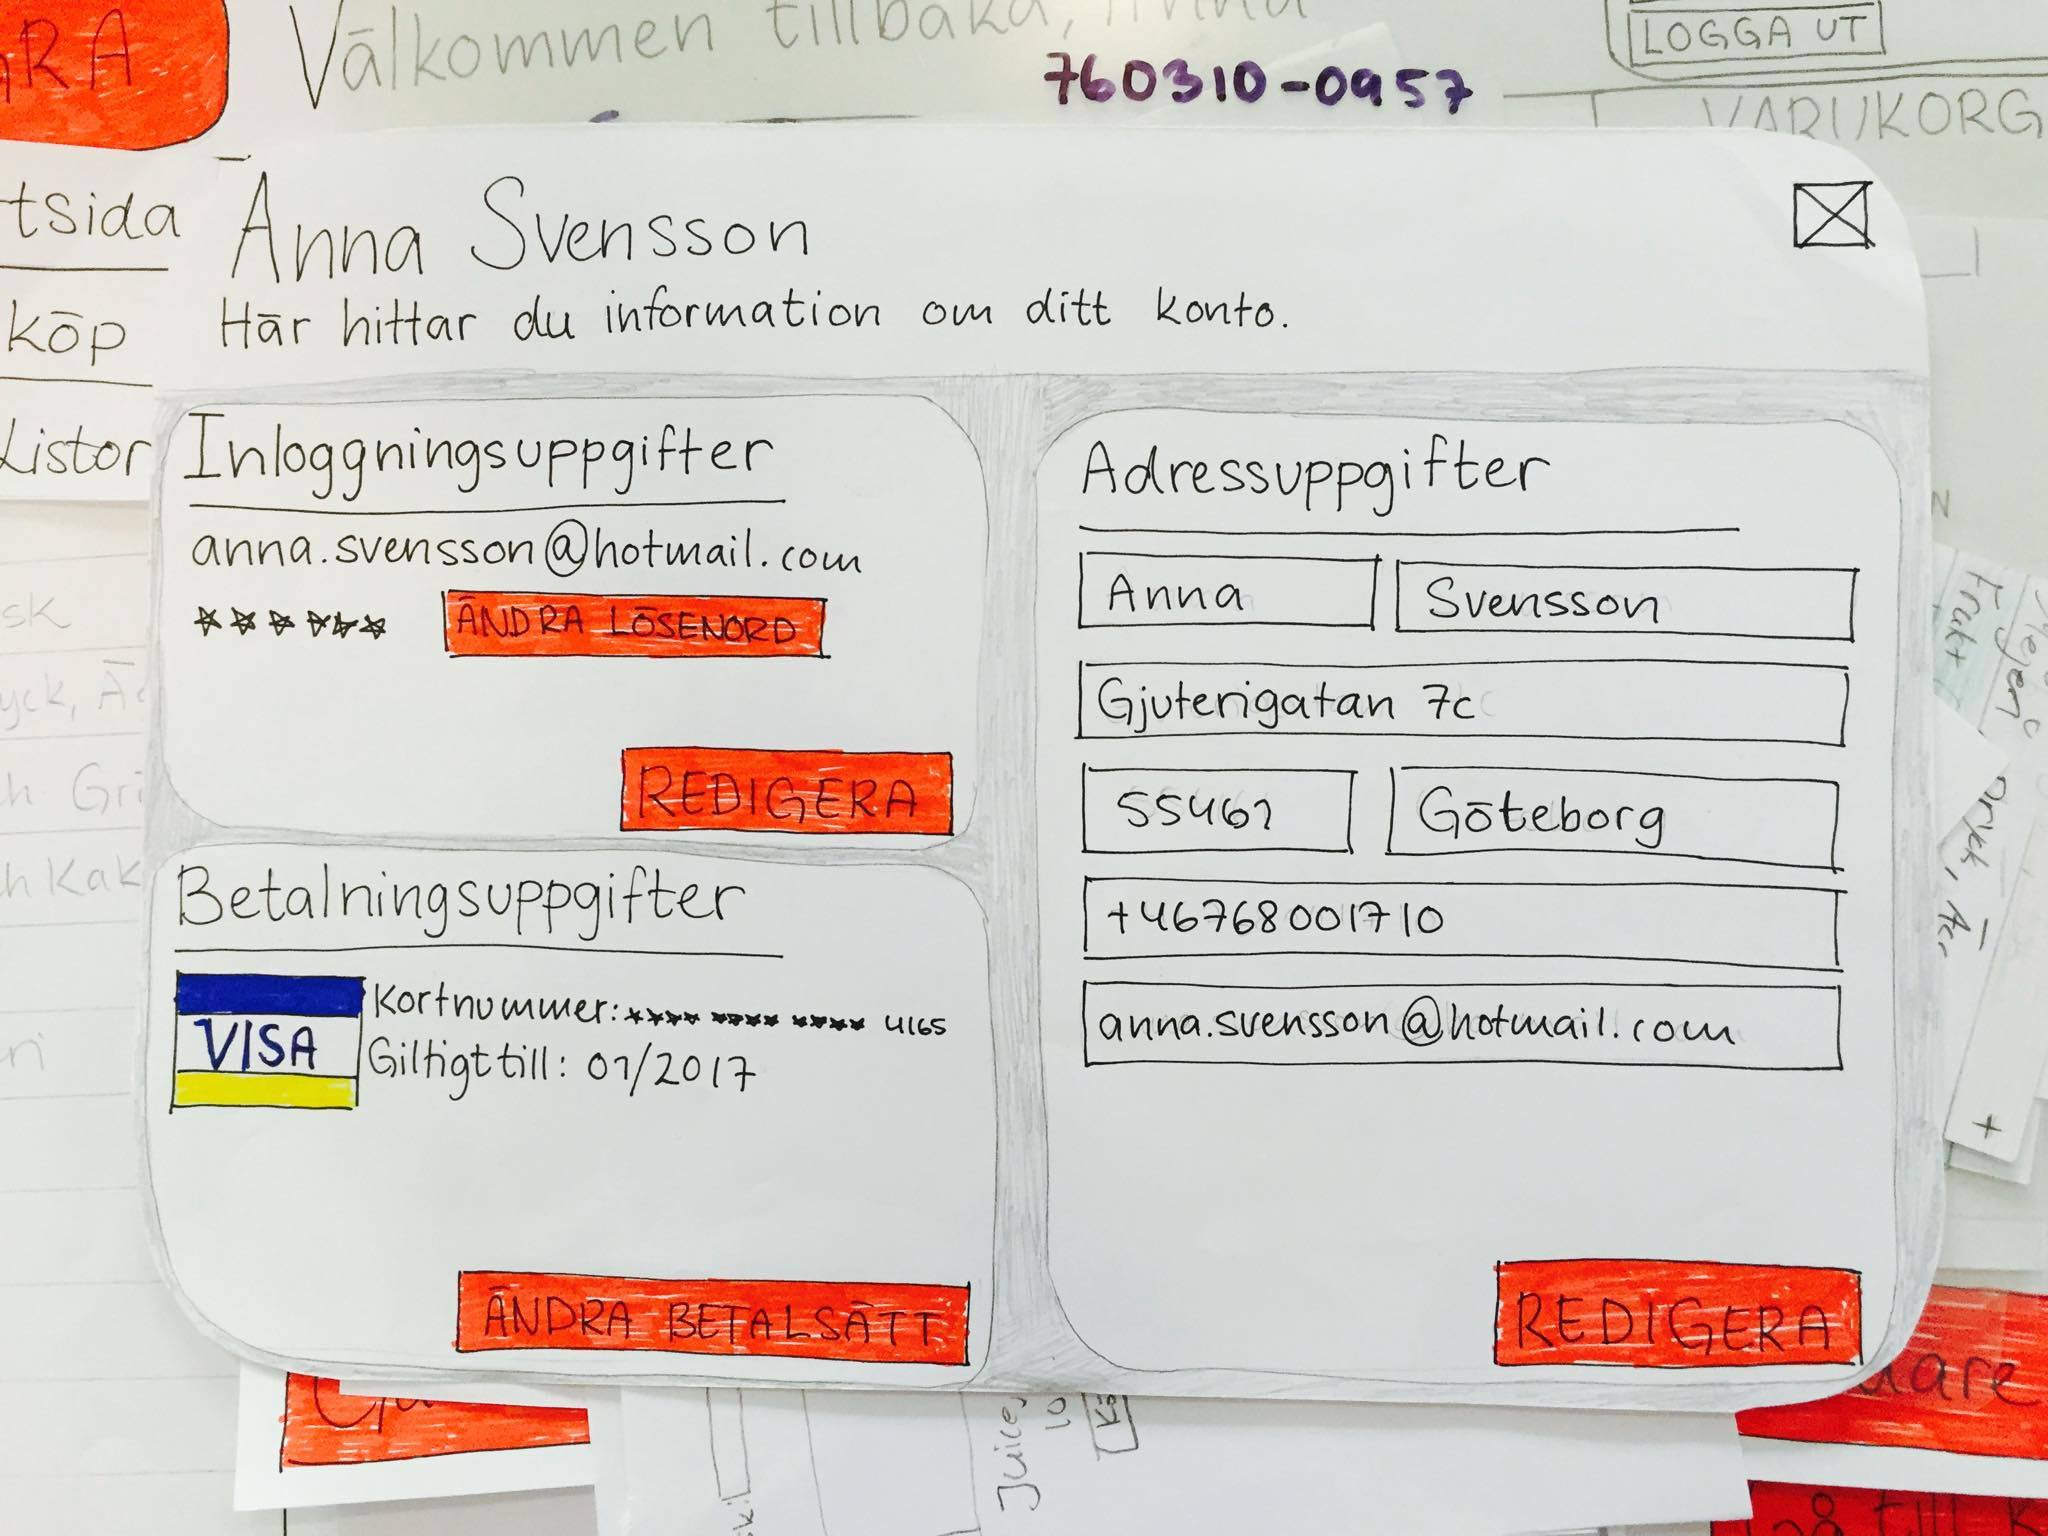 Välkommen tillbaka, Anna
LOGGA UT
760310-0957
VARUKORG
tsida
köp
Listor
Anna Svensson
Här hittar du information om ditt konto.
Inloggningsuppgifter
anna.svensson@hotmail.com
****** ÄNDRA LÖSENORD
REDIGERA
Betalningsuppgifter
VISA
Kortnummer: **** **** **** 4165
Giltigt till: 01/2017
ÄNDRA BETALSÄTT
Adressuppgifter
Anna Svensson
Gjuterigatan 7c
55461 Göteborg
+46768001710
anna.svensson@hotmail.com
REDIGERA
sk
yck,
h Gri
h Kak
Frukt
Juice
10
till